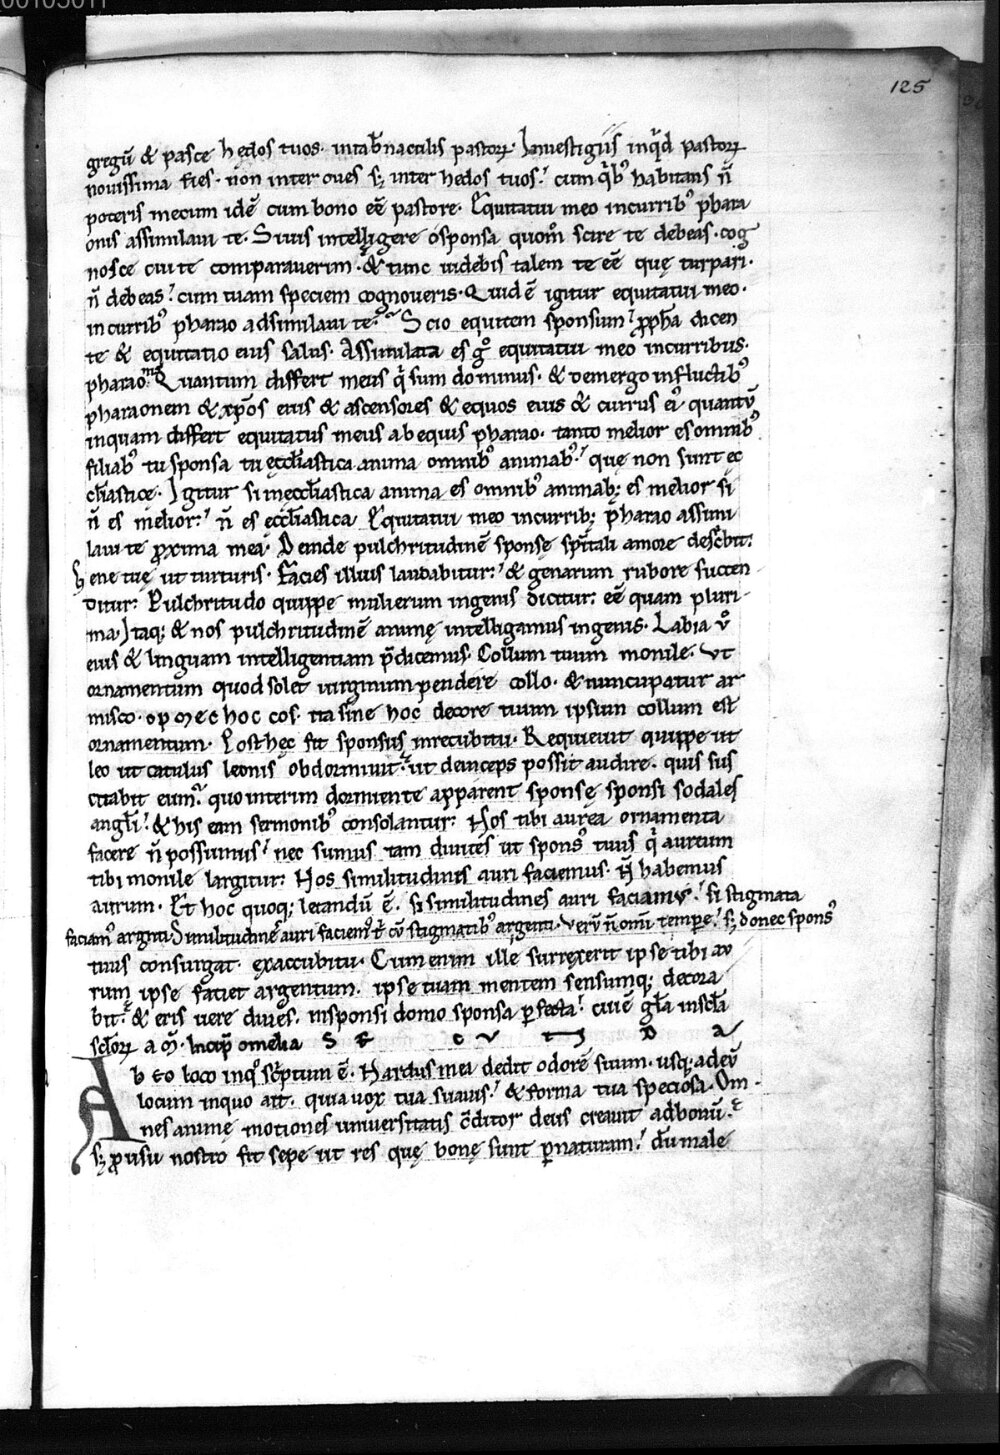 125
gregū & pasce hędos tuos. intab̄naculis pastoꝝ. Inuestigiis inq̇d pastoꝝ
nouissima fies. non inter oues sꝫ inter hedos tuos. cum qͥbꝰ habitans n̄
poteris mecum idē cum bono eē pastore. Equitatui meo incurribꝰ phara
onis assimilaui te. Siuis intelligere osponsa quom̄ scire te debeas. cog
nosce cui te comparauerim. & tunc uidebis talem te eē quę turpari
n̄ debeas. cum tuam speciem cognoueris. Quid ē igitur equitatui meo.
incurribꝰ pharao adsimilaui te. Scio equitem sponsum ꝓph̄a dicen
te & equitatio eius salus. Assimilata es gͦ equitatui meo incurribus.
pharaonis Quantum differt meus qͥ sum dominus. & demergo influctibꝰ
pharaonem & xp̄os eius & ascensores & equos eius & currus eiꝰ quantū
inquam differt equitatus meus ab equis pharao. tanto melior es omnibꝰ
filiabꝰ tu sponsa tu ęccl̄iastica anima omnibꝰ animabꝰ. quę non sunt ec
cl̄iasticę. Igitur si męccl̄iastica anima es omnibꝰ animabꝫ es melior si
n̄ es melior. n̄ es eccl̄iastica Equitatui meo incurribꝫ pharao assimi
laui te ꝓxima mea. Deinde pulchritudinē sponsę sp̄itali amore descͥbit.
Genę tuę ut turturis. Facies illius laudabitur. & genarum rubore succen
ditur. Pulchritudo quippe mulierum ingenis dicitur. eē quam pluri
ma. Itaqꝫ & nos pulchritudinē animę intelligamus ingenis. Labia v̊
eius & linguam intelligentiam p̄dicemus. Collum tuum monile. Vt
ornamentum quod solet uirginum pendere collo. & nuncupatur ar
misco. opmec hoc cos. ita sine hoc decore tuum ipsum collum est
ornamentum. Post hęc fit sponsus inrecubitu. Requieuit quippe ut
leo ut catulus leonis obdormiuit. ut deinceps possit audire. quis sus
citabit eum. quo interim dormiente apparent sponsę sponsi sodales
angl̄i. & his eam sermonibꝰ consolantur. Nos tibi aurea ornamenta
facere n̄ possumus. nec sumus tam diuites ut sponsꝰ tuus qͥ aureum
tibi monile largitur. Nos similitudines auri faciemus. n̄ habemus
aurum. Et hoc quoqꝫ letandū ē. si similitudines auri faciamꝰ. si stigmata
faciamꝰ argenti. Similitudinē auri faciemꝰ t̄ cū stigmatibꝰ argenti. verū n̄ om̄i tempore. sꝫ donec sponsꝰ
tuus consurgat. exaccubitu. Cum enim ille surrexerit ipse tibi au
rum ipse faciet argentum. ipse tuam mentem sensumqꝫ decora
bit. & eris uere diues. insponsi domo sponsa ꝑfecta. cui ē gl̄a inscl̄a
scl̄oꝝ am̄. Incip̄ omelia SECUNDA
Ab eo loco inqͦ scͥptum ē. Nardus mea dedit odorē suum. usqꝫ ad eū
locum inquo ait. quia uox tua suauis. & forma tua speciosa. Om
nes animę motiones uniuersitatis c̄ditor deus creauit ad bonū.
sꝫ ꝓ usu nostro fit sepe ut res quę bonę sunt ꝑ naturam. dū male